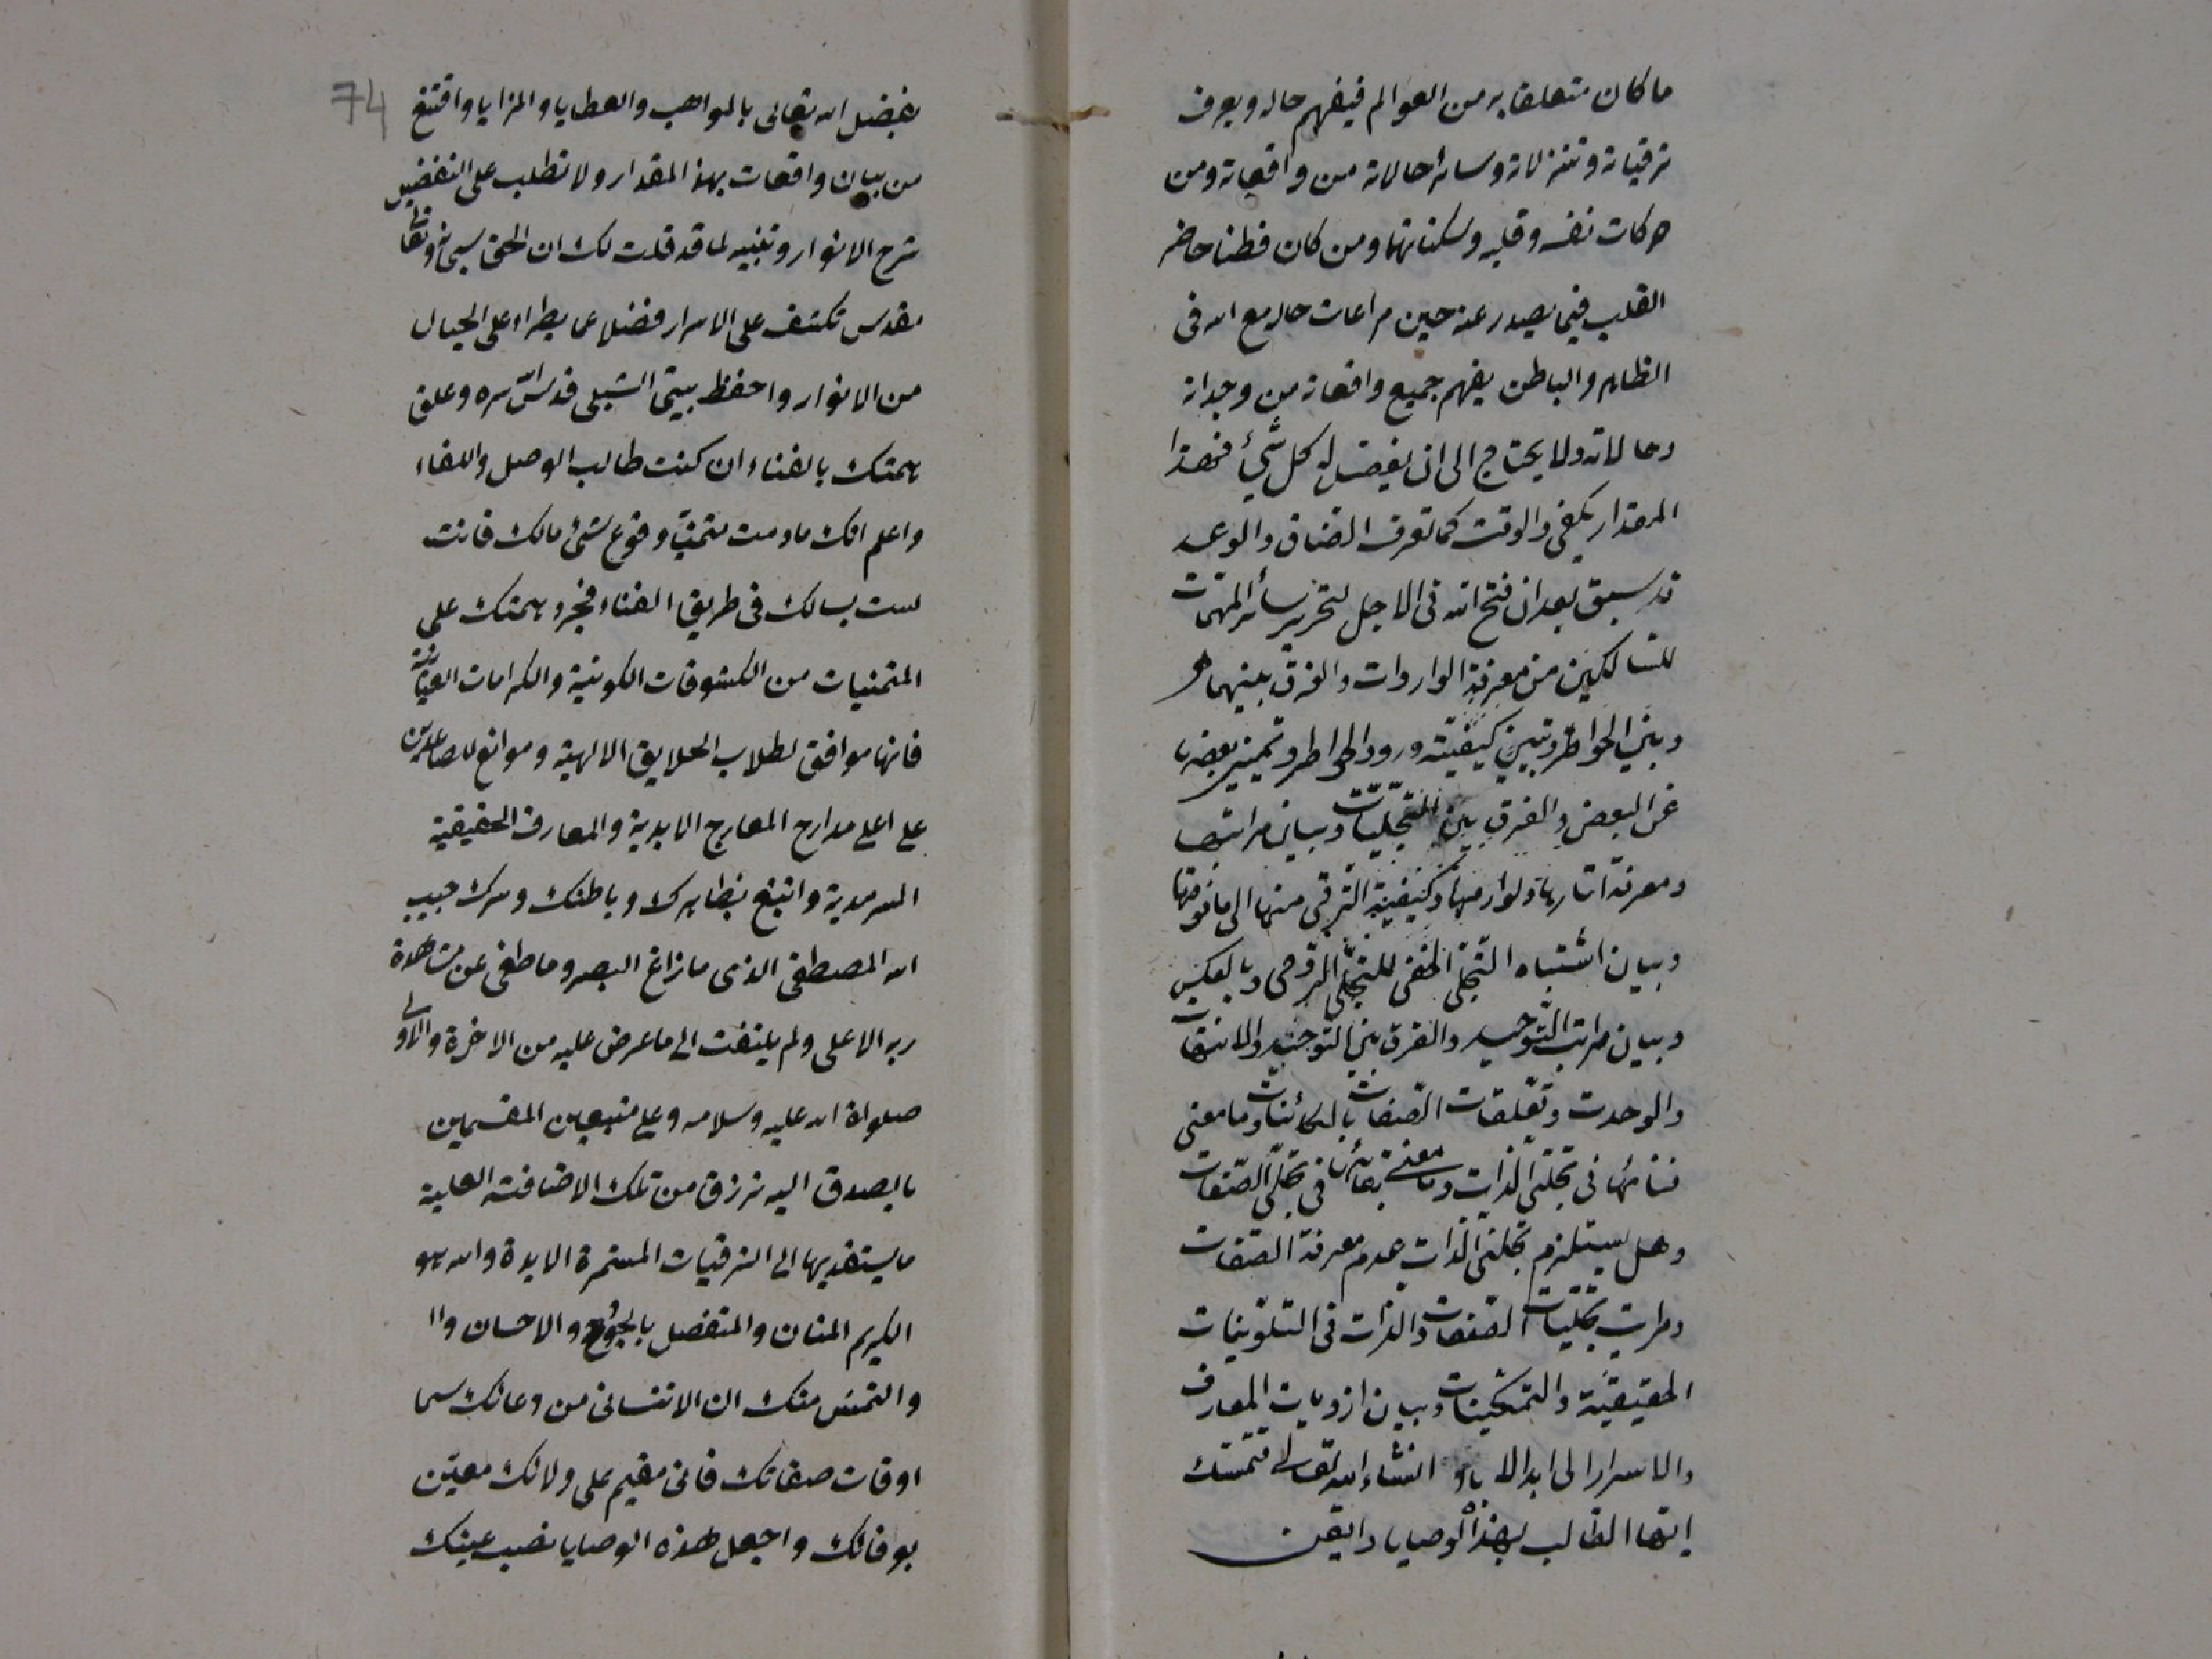 ما كان متعلقا به من العوالم فيفهم حاله ويعرف
ترقياته وتنزلاته وسائر حالاته من واقعاته ومن
حركات نفسه وقلبه وسكناتهما ومن كان فطنا حاضر
القلب فيما يصدر عنه حين مراعات حاله مع الله في
الظاهر والباطن يفهم جميع واقعاته من وجدانه
وحالاته ولا يحتاج الى ان يفصل له كل شيء فهذا
المقدار يكفي والوقت كما تعرف الضاق والوعد
قد سبق بعد ان فتح الله في الاجل لتحرير سائر المهمات
للسالكين من معرفة الواردات والفرق بينهما
وبين الخواطر وتبيين كيفيته ورود الخواطر وتمييز بعضها
عن البعض والفرق بين التجليات وبيان مراتبها
ومعرفة اثارها ولوازمها وكيفية الترقى منها الى ما فوقها
وبيان اشتباه التجلى الحقى للتجلى الروحى وبالعكس
وبيان مراتب التوحيد والفرق بين التوحيد والاتصاف
والوحدت وتعلقات الصفات بالكائنات وما معنى
فنائها فى تجلى الذات وما معنى بقائها فى تجلى الصفات
وهل يستلزم تجلى الذات عدم معرفة الصفات
ومراتب تجليات الصفات والذات فى التلوينات
الحقيقية والتمكينات وبيان ازديات المعارف
والاسرار الى ابد الاباد انشاء الله تعالى فتمسك
ايها الطالب بهذه الوصايا وايقن
74
بفضل الله تعالى بالمواهب والعطايا والمزايا واقتنع
من بيان واقعات بهذا المقدار ولا تطلب على التفصيل
شرح الانوار وتنبيه لما قد قلت لك ان الحق سبحانه وتعالى
مقدس تكشف على الاسرار فضلا عما يطراء على الخيال
من الانوار واحفظ بيتى الشبلى قدس الله سره وعلق
همتك بالفناء ان كنت طالب الوصل واللقاء
واعلم انك مادمت متمنيا وقوع شئ مالك فانت
لست بسالك فى طريق الفناء فجرد همتك على
المتمنيات من الكشوفات الكونية والكرامات العيانية
فانها موافق لطلاب الخلايق الالهية وموانع للصاعدين
على اعلى مدارج المعارج الابدية والمعارف الحقيقية
السرمدية واتبع بظاهرك وباطنك وسرك حبيب
الله المصطفى الذى ما زاغ البصر وما طغى عن مشاهدة
ربه الاعلى ولم يلتفت الى ما عرض عليه من الاخرة والاولى
صلواة الله عليه وسلامه وعلى متبعين
بالصدق اليه ترزق من تلك الاضافته العلية
ما بها الى الترقيات المستمرة الابدة والله هو
الكريم المنان والمتفضل بالجود والاحسان وا
والتمس منك ان لا تنسانى من دعائك سيما
اوقات صفائك فانى مقيم على ولائك معين
بوفائك واجعل هذه الوصايا نصب عينك